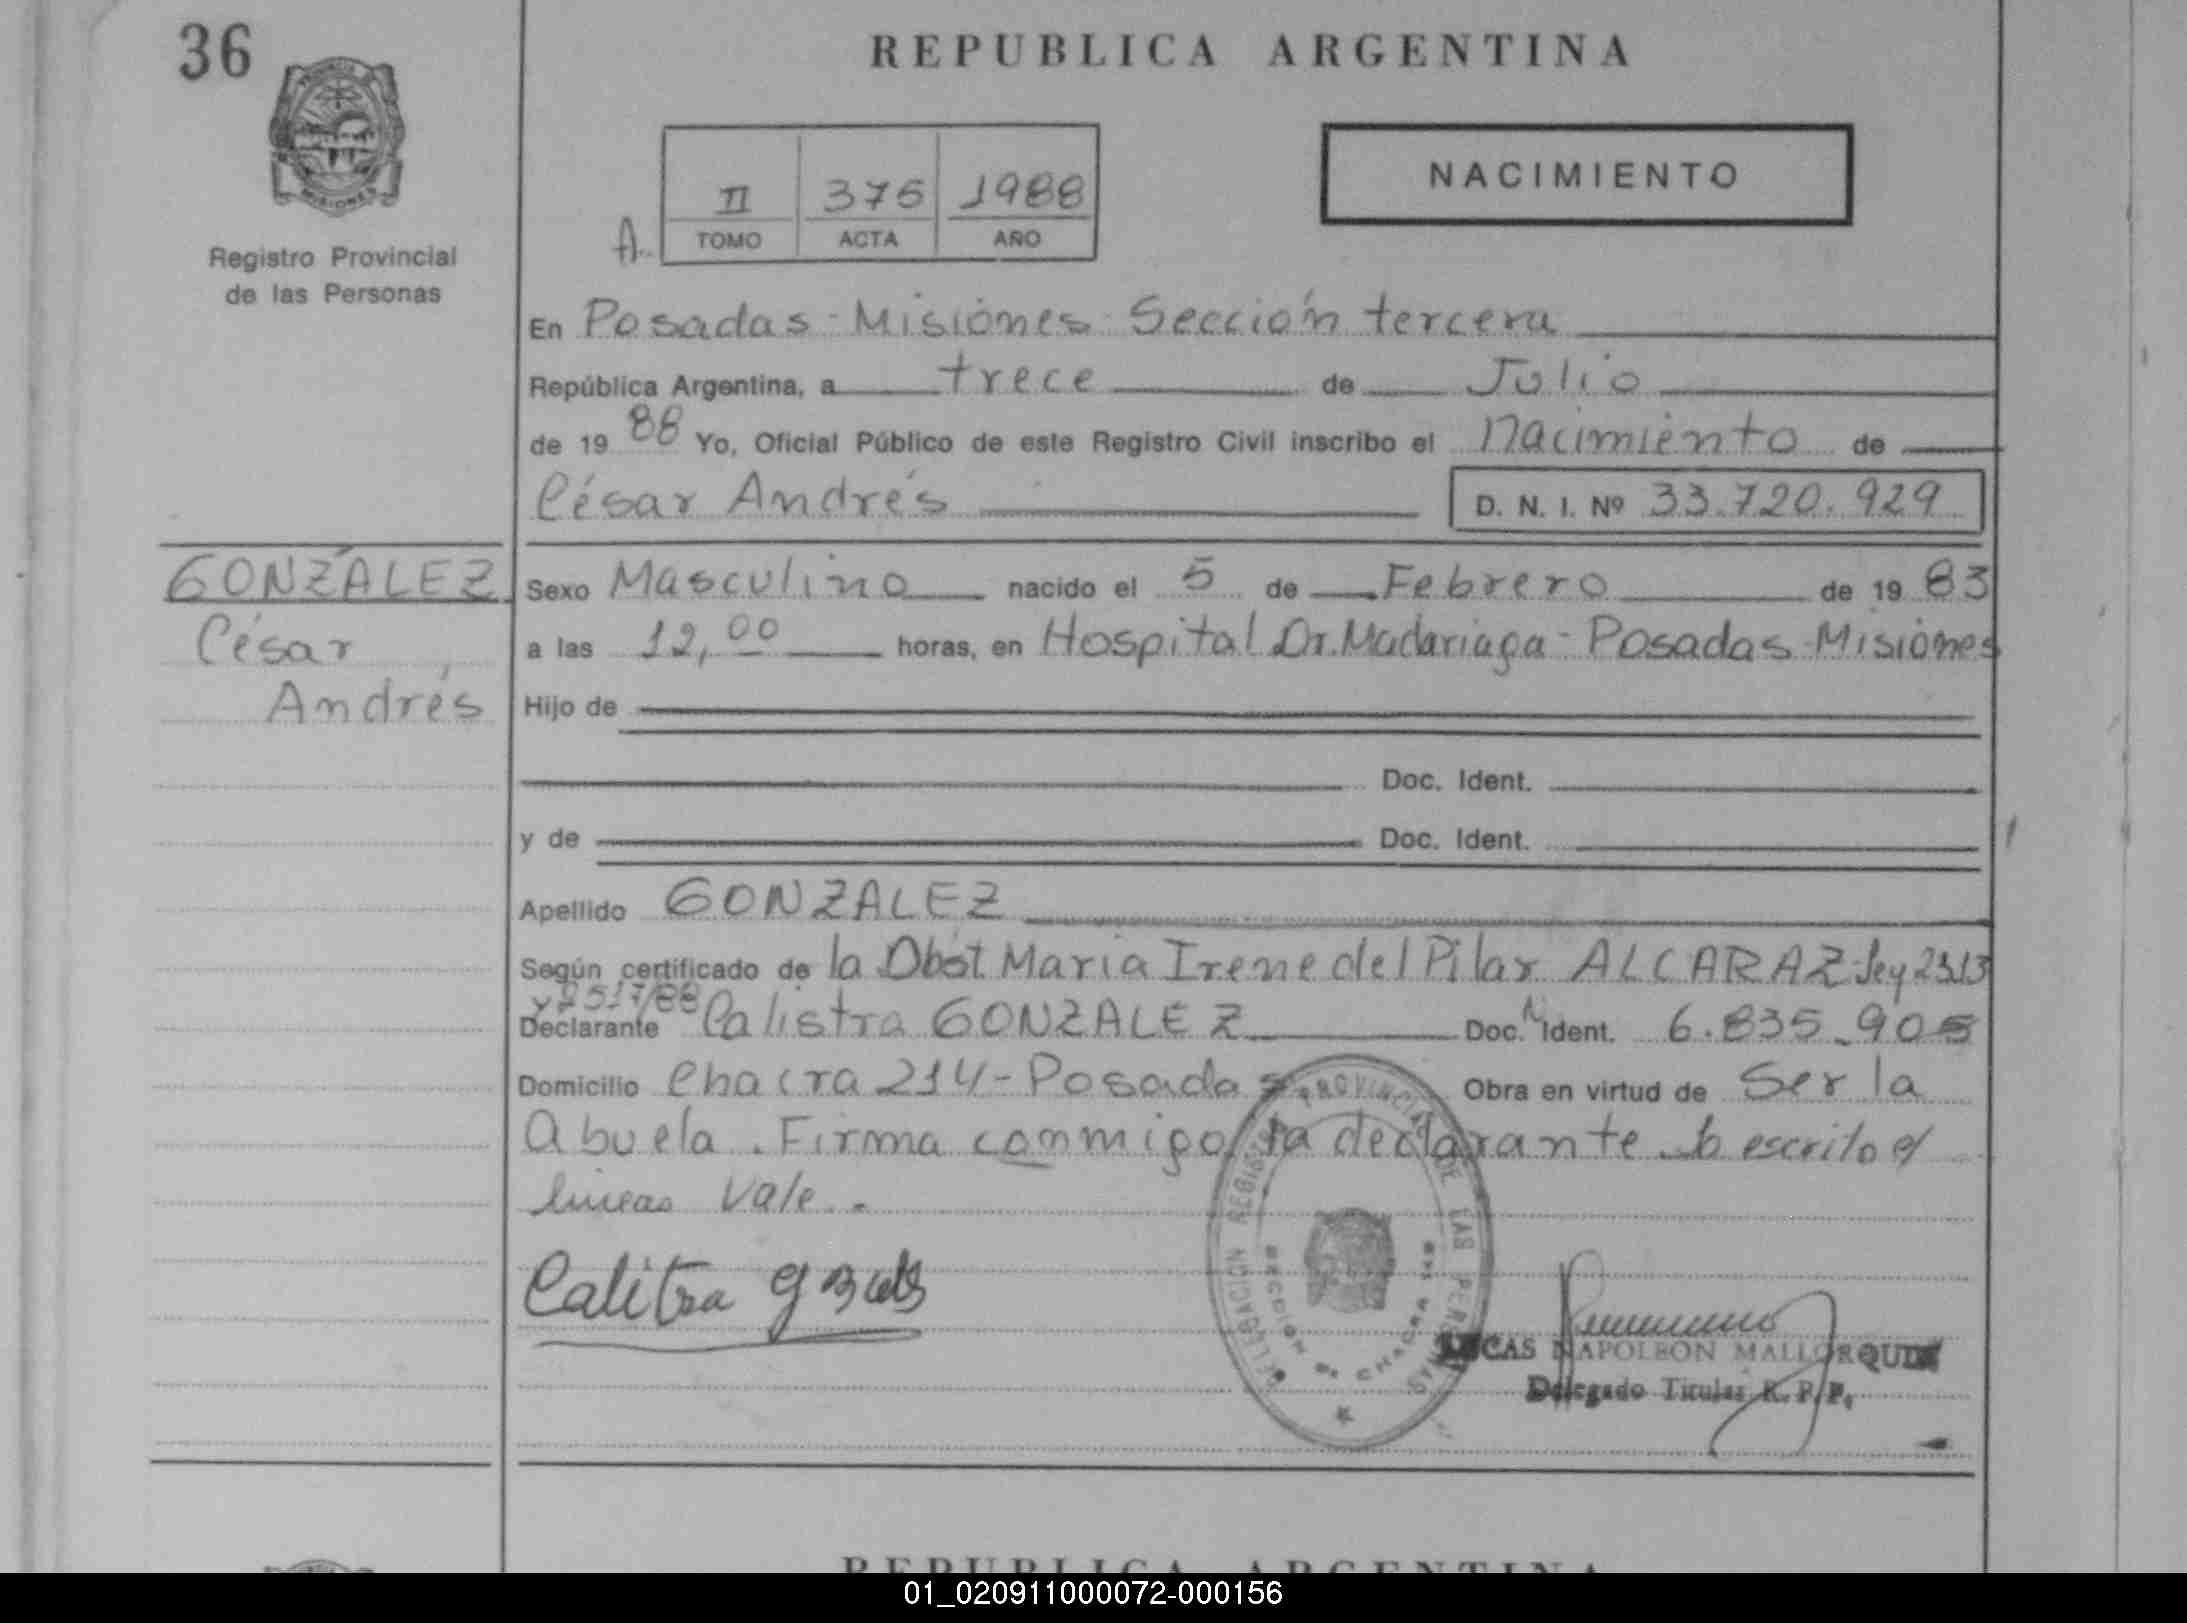 36
REPUBLICA ARGENTINA
MISIONES
Registro Provincial
de las Personas
II 376 1988
A. TOMO ACTA AÑO
NACIMIENTO
En Posadas - Misiónes - Sección tercera
República Argentina, a trece de Julio
de 19 88 Yo, Oficial Público de este Registro Civil inscribo el Nacimiento de
César Andrés D. N. I. Nº 33.720.929
GONZÁLEZ
César
Andrés
Sexo Masculino nacido el 5 de Febrero de 19 83
a las 12,00 horas, en Hospital Dr. Madariaga - Posadas - Misiónes
Hijo de
Doc. Ident.
y de Doc. Ident.
Apellido GONZALEZ
Según certificado de la Obst Maria Irene del Pilar ALCARAZ - ley 2313
y 2517/88
Declarante Calistra GONZALEZ Doc. Ident. 6.835.905
Domicilio Chacra 214 - Posadas Obra en virtud de Ser la
Abuela. Firma conmigo la declarante lo escrito e/
lineas Vale.-
Calitra
DELEGACION REGISTRO PROVINCIAL DE LAS PERSONAS
SECCION 3ª CHACRA
LUCAS NAPOLEON MALLORQUIN
Delegado Titular R. P. P.
REPUBLICA ARGENTINA
01_020911000072-000156